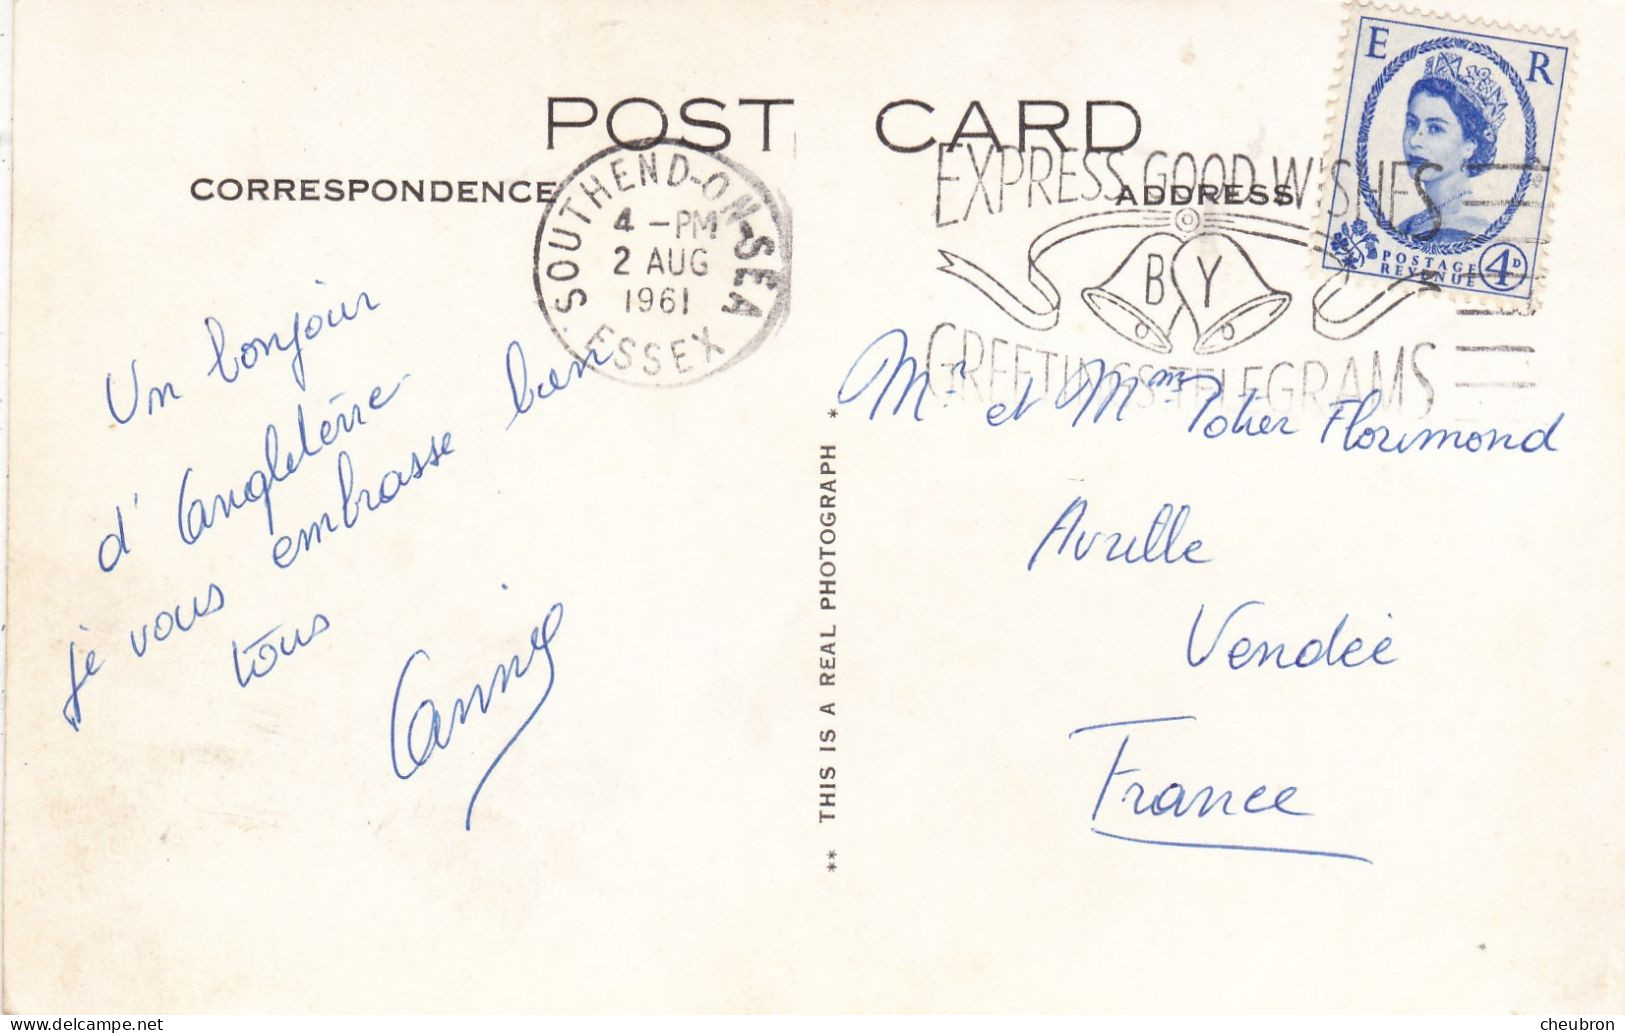 POST CARD
CORRESPONDENCE
ADDRESS
SOUTHEND-ON-SEA
4 - PM
2 AUG
1961
ESSEX
EXPRESS GOOD WISHES
BY
GREETINGS TELEGRAMS
E R
POSTAGE
REVENUE
4D
Un bonjour
d'Angleterre
je vous embrasse bien
tous
Annie
** THIS IS A REAL PHOTOGRAPH **
Mr et Mme Potier Florimond
Avrille
Vendée
France
cheubron